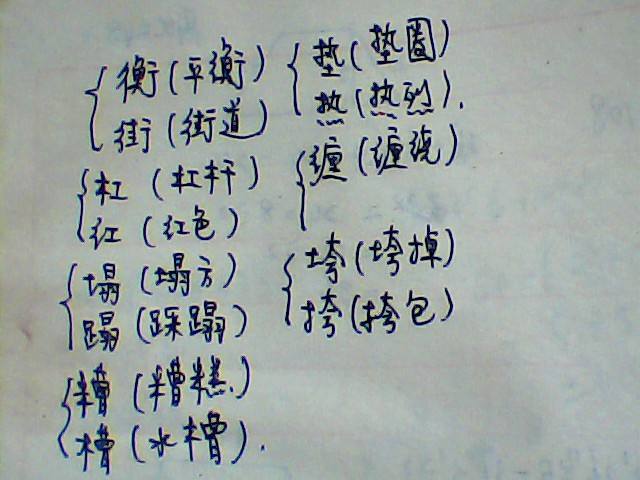 衡(平衡)
街(街道)
杠(杠杆)
红(红色)
塌(塌方)
蹋(踩蹋)
糟(糟糕.)
槽(水槽).
垫(垫圈)
热(热烈).
缠(缠绕)
垮(垮掉)
挎(挎包)